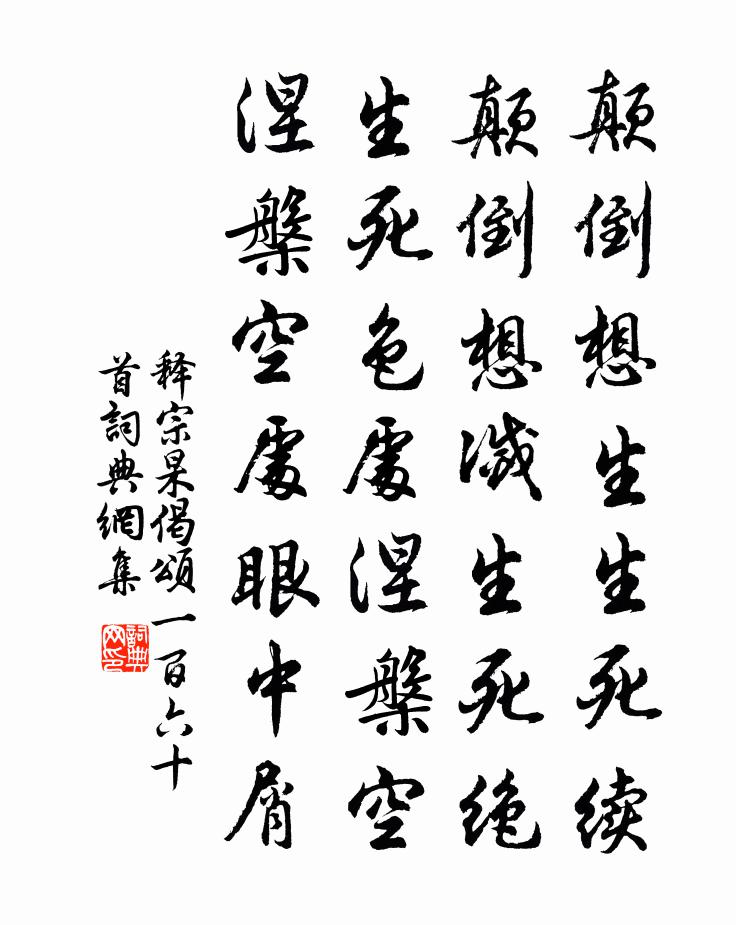 颠倒想生生死续
颠倒想滅生死绝
生死色處涅槃空
涅槃空處眼中屑
释宗杲偈頌一百六十
首詞典網集
詞典
网印